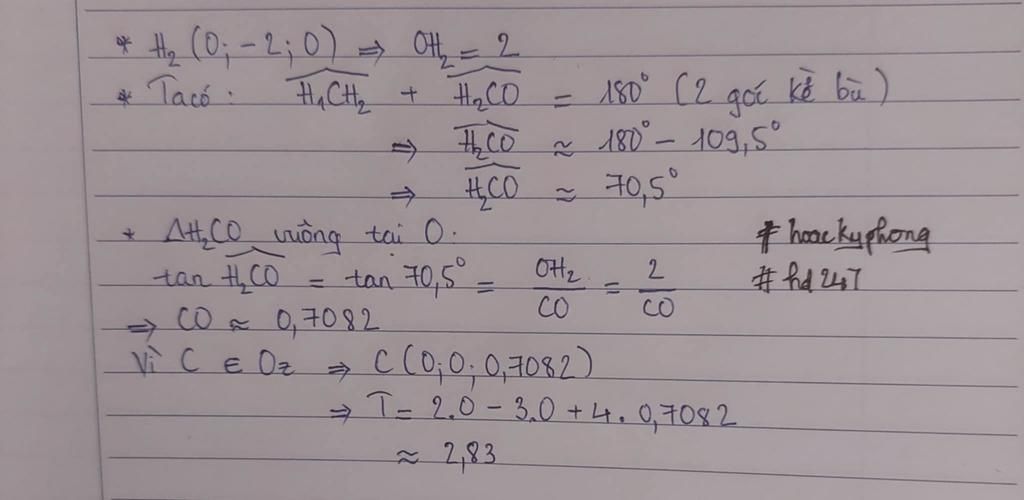 * H₂ (0; -2; 0) ⇒ OH₂ = 2
* Ta có: H₁CH₂ + H₂CO = 180° (2 goć kề bù)
⇒ H₂CO ≈ 180° - 109,5°
⇒ H₂CO ≈ 70,5°
* ΔH₂CO vuông tại O:
# hoackyphong
tan H₂CO = tan 70,5° = OH₂/CO = 2/CO
# hd247
⇒ CO ≈ 0,7082
Vì C ∈ Oz ⇒ C (0; 0; 0,7082)
⇒ T = 2.0 - 3.0 + 4. 0,7082
≈ 2,83